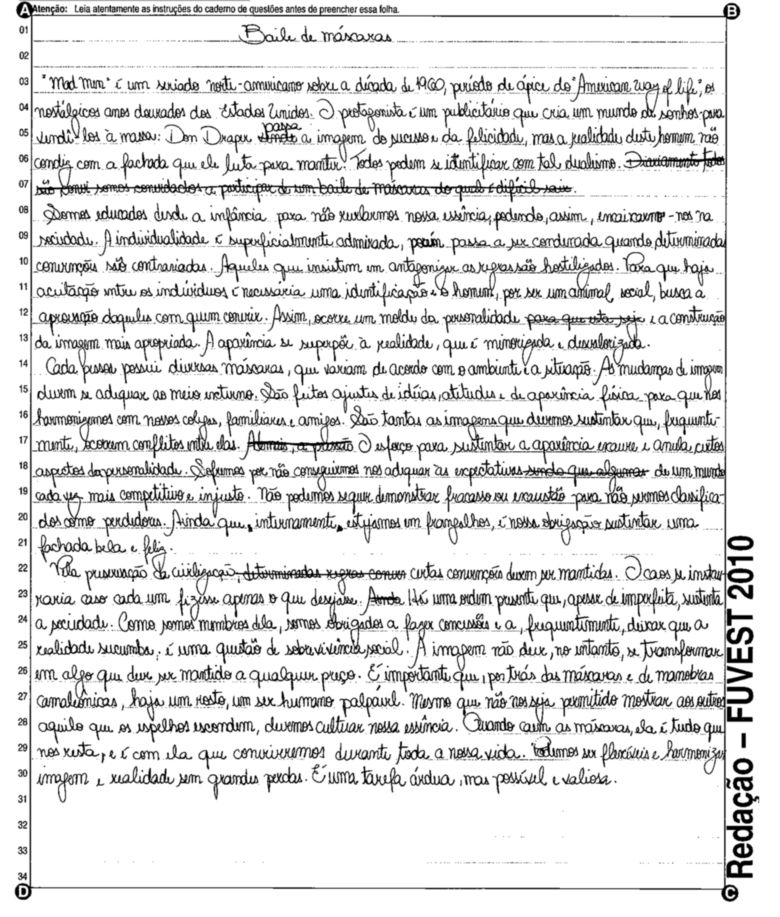 A Atenção: Leia atentamente as instruções do caderno de questões antes de preencher essa folha. B
01 Baile de máscaras
02
03 "Mad Men" é um seriado norte-americano sobre a década de 1960, período de ápice do "American way of life", os
04 nostálgicos anos dourados dos Estados Unidos. O protagonista é um publicitário que cria um mundo de sonhos para
05 vendê-los à massa: Don Draper passa a imagem do sucesso e da felicidade, mas a realidade deste homem não
06 condiz com a fachada que ele luta para manter. Todos podem se identificar com tal dualismo. Diariamente todos
07 são convi somos convidados a participar de um baile de máscaras do qual é difícil sair.
08 Somos educados desde a infância para não revelarmos nossa essência, podendo, assim, encaixarmo-nos na
09 sociedade. A individualidade é superficialmente admirada, porém passa a ser condenada quando determinadas
10 convenções são contrariadas. Aqueles que insistem em antagonizar as regras são hostilizados. Para que haja
11 aceitação entre os indivíduos é necessária uma identificação e o homem, por ser um animal social, busca a
12 aprovação daqueles com quem convive. Assim, ocorre um molde da personalidade para que esta seja e a construção
13 da imagem mais apropriada. A aparência se superpõe à realidade, que é minorizada e desvalorizada.
14 Cada pessoa possui diversas máscaras, que variam de acordo com o ambiente e a situação. As mudanças de imagem
15 devem se adequar ao meio externo. São feitos ajustes de idéias, atitudes e de aparência física para que nos
16 harmonizemos com nossos colegas, familiares e amigos. São tantas as imagens que devemos sustentar que, frequente-
17 mente, ocorrem conflitos entre elas. Ademais, a pressão O esforço para sustentar a aparência exaure e anula certos
18 aspectos da personalidade. Sofremos por não conseguirmos nos adequar às expectativas sendo que algumas de um mundo
19 cada vez mais competitivo e injusto. Não podemos sequer demonstrar fracasso ou exaustão para não sermos classifica-
20 dos como perdedores. Ainda que, internamente, estejamos em frangalhos, é nossa obrigação sustentar uma
21 fachada bela e feliz.
22 Pela preservação da civilização, determinadas regras conven certas convenções devem ser mantidas. O caos se instau-
23 raria caso cada um fizesse apenas o que desejasse. Ainda Há uma ordem presente que, apesar de imperfeita, sustenta
24 a sociedade. Como somos membros dela, somos obrigados a fazer concessões e a, frequentemente, deixar que a
25 realidade sucumba: é uma questão de sobrevivência social. A imagem não deve, no entanto, se transformar
26 em algo que deve ser mantido a qualquer preço. É importante que, por trás das máscaras e de manobras
27 camaleônicas, haja um rosto, um ser humano palpável. Mesmo que não nos seja permitido mostrar aos outros
28 aquilo que os espelhos escondem, devemos cultivar nossa essência. Quando caem as máscaras, ela é tudo que
29 nos resta, e é com ela que conviveremos durante toda a nossa vida. Podemos ser flexíveis e harmonizar
30 imagem e realidade sem grandes perdas. É uma tarefa árdua, mas possível e valiosa.
31
32
33
34
D C
Redação – FUVEST 2010